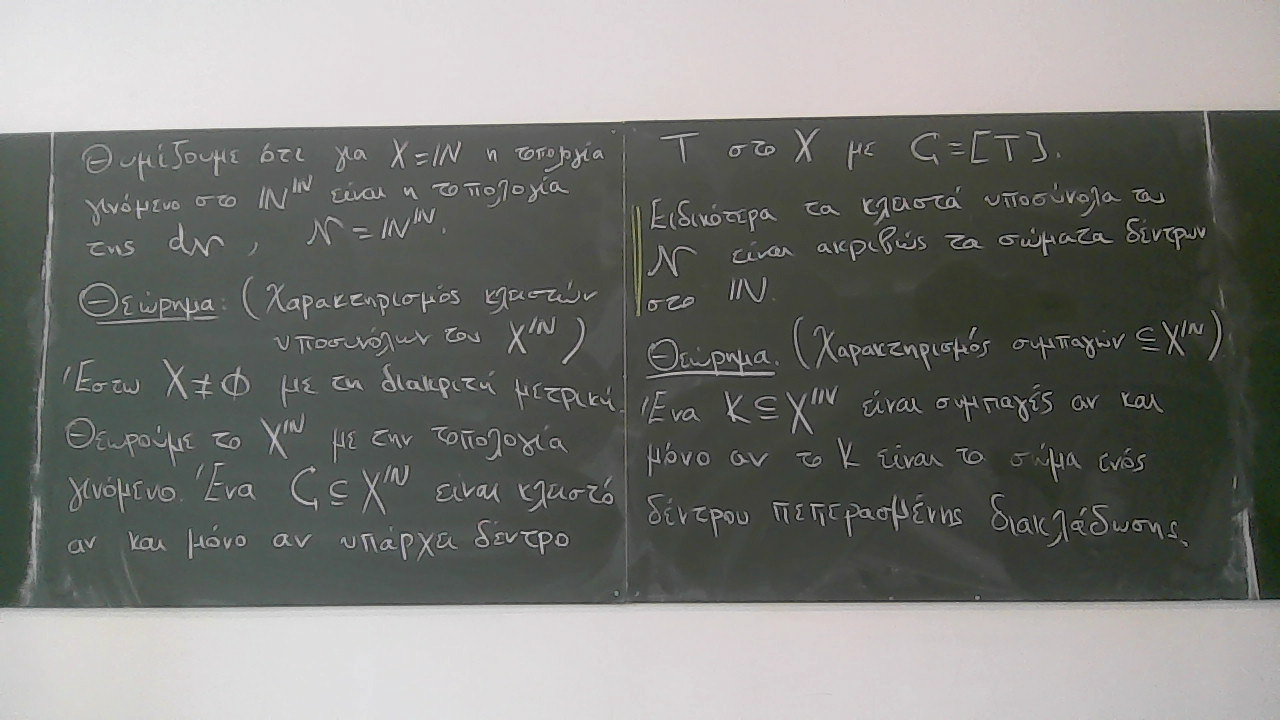 Θυμίζουμε ότι για X = ℕ η τοπολογία
γινόμενο στο ℕ^ℕ είναι η τοπολογία
της d_𝒩, 𝒩 = ℕ^ℕ.
Θεώρημα: (Χαρακτηρισμός κλειστών
υποσυνόλων του X^ℕ)
Έστω X ≠ ∅ με τη διακριτή μετρική.
Θεωρούμε το X^ℕ με την τοπολογία
γινόμενο. Ένα C ⊆ X^ℕ είναι κλειστό
αν και μόνο αν υπάρχει δέντρο
T στο X με C = [T].
Ειδικότερα τα κλειστά υποσύνολα του
𝒩 είναι ακριβώς τα σώματα δέντρων
στο ℕ.
Θεώρημα. (Χαρακτηρισμός συμπαγών ⊆ X^ℕ)
Ένα K ⊆ X^ℕ είναι συμπαγές αν και
μόνο αν το K είναι το σώμα ενός
δέντρου πεπερασμένης διακλάδωσης.